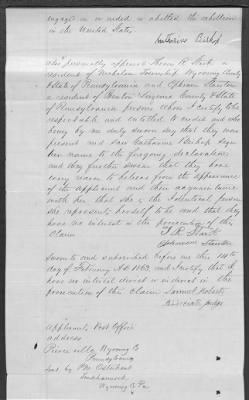 engaged in or aided or abetted the rebellion
in the United States
Catharine Bishop
also personally appeared Thomas R. Stark a
resident of Mehoopany Township Wyoming County
& State of Pennsylvania and
a resident of Wyoming County & State
of Pennsylvania persons whom I certify to be
respectable and entitled to credit and who
being by me duly sworn say that they were
present and saw Catharine Bishop sign
her name to the foregoing declaration
and they further swear that they have
every reason to believe from the appearance
of the applicant and their acquaintance
with her that she is the identical person
she represents herself to be and that they
have no interest in the prosecution of this
claim
T. R. Stark
Sworn to and subscribed before me this 14th
day of February AD 1863, and I certify that I
have no interest direct or indirect in the
prosecution of this claim Samuel Roberts
Associate Judge
Applicants Post Office
address
Pierceville Wyoming Co
Pennsylvania
Sent by P.M. Osterhout
Tunkhannock
Wyoming Co Pa